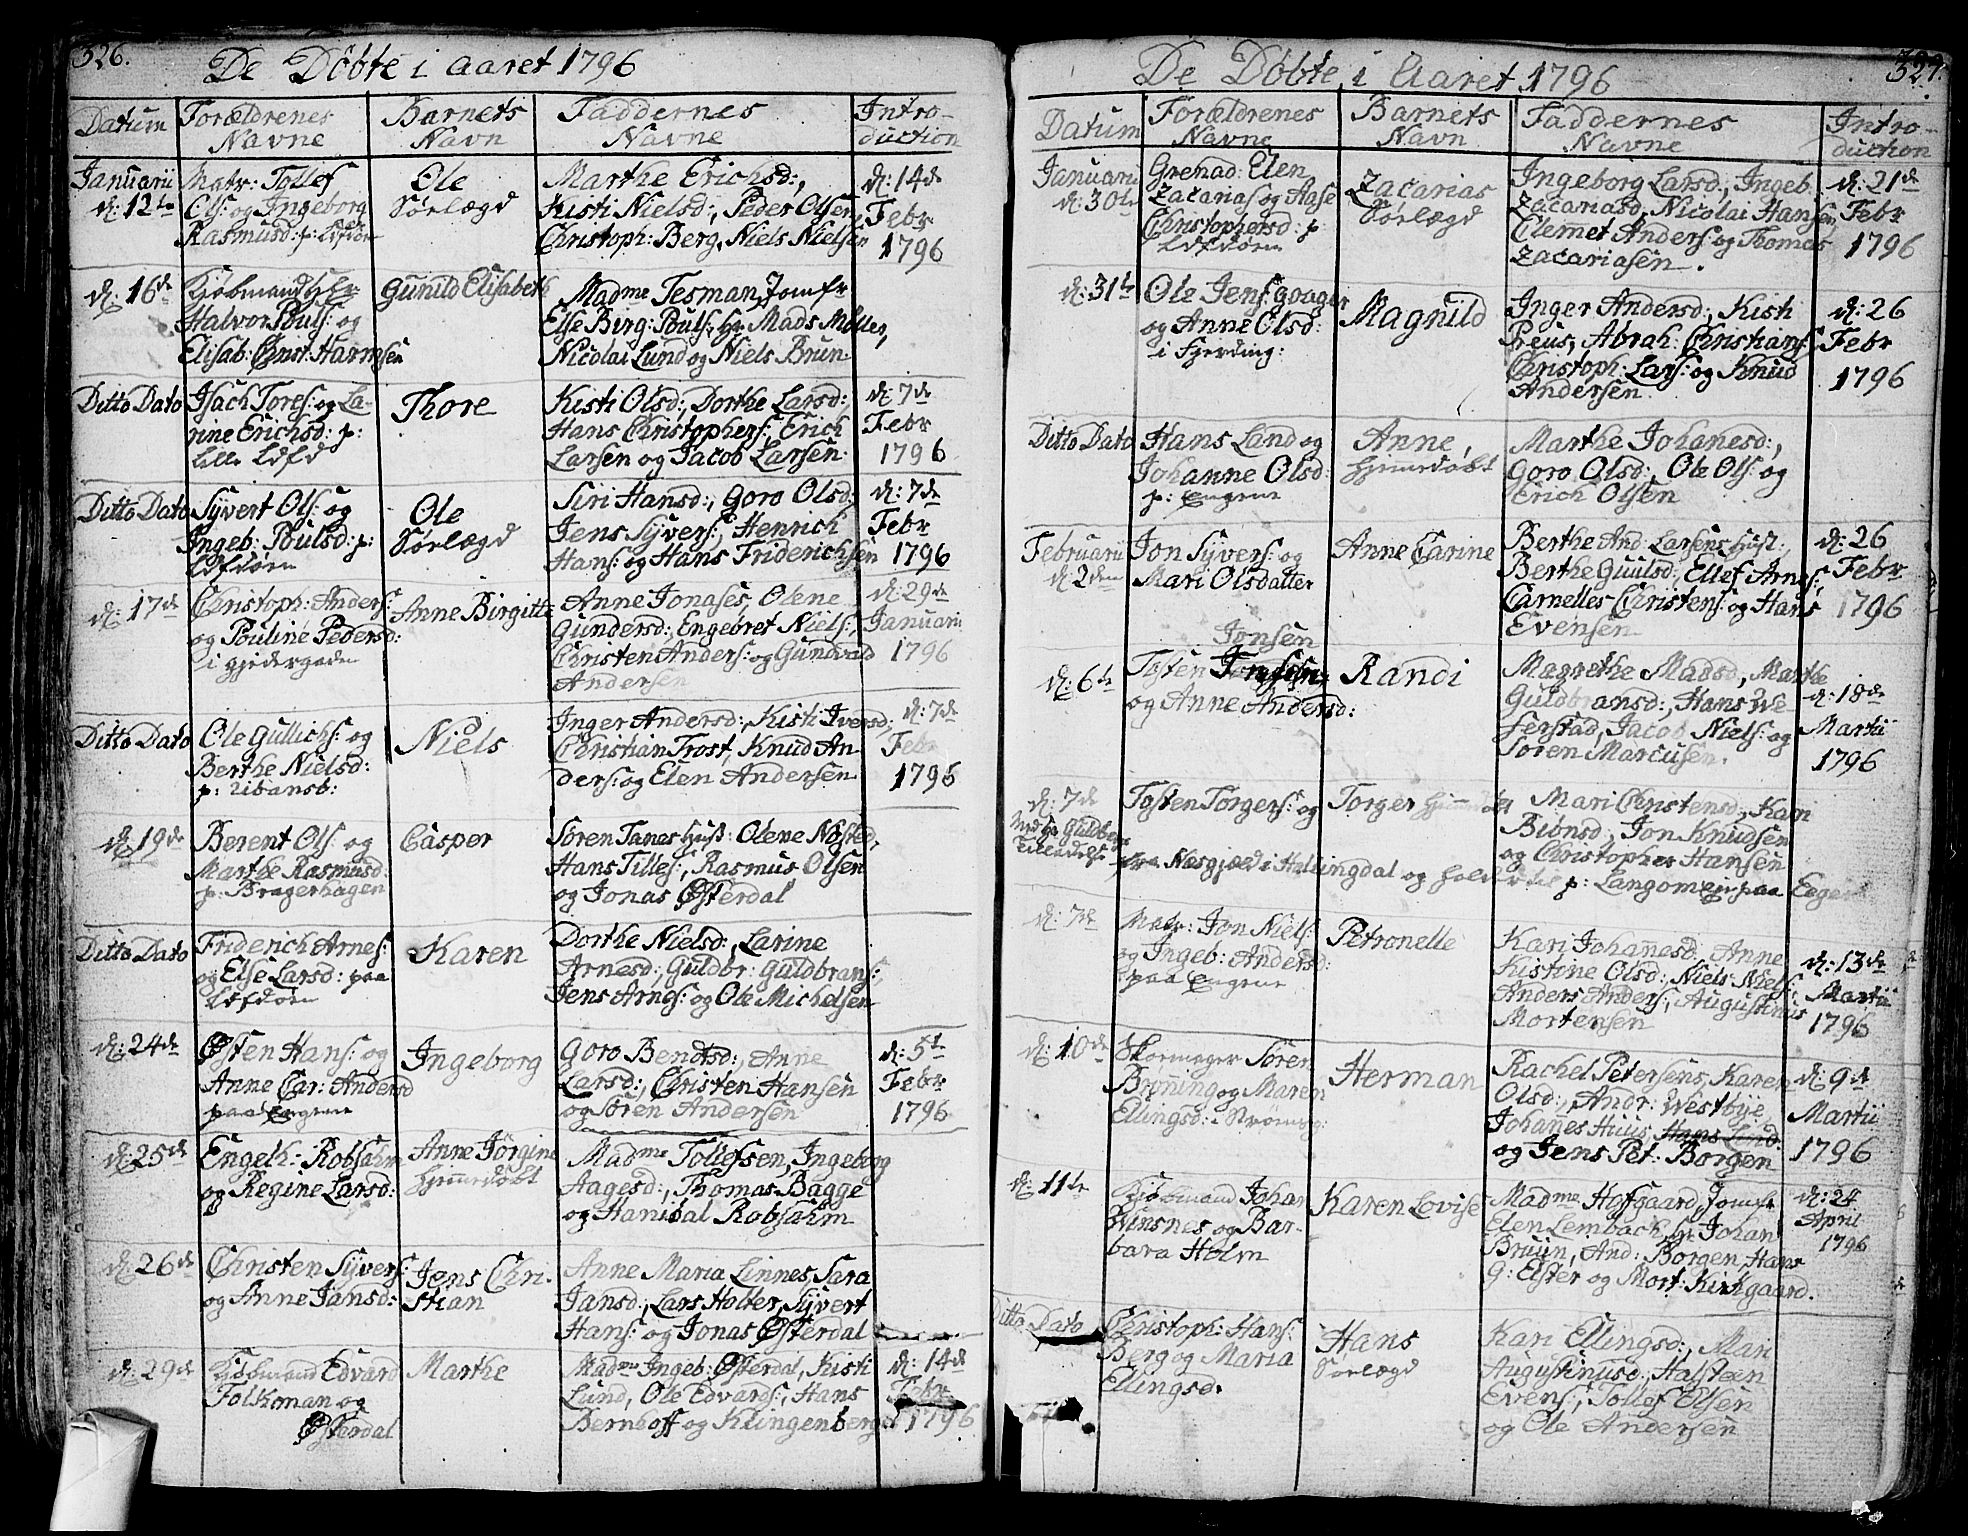 326.
De Döbte i Aaret 1796
Datum
Forældrenes Navne
Barnets Navn
Faddernes Navne
Introduction
Januarii d: 12te
Matr: Tollef
Ols: og Ingeborg
Rasmusd: p:
Ole
Sørlægd
Marthe Erichsd:,
Kisti Nielsd:, Peder Olsen
Christoph: Berg, Niels Nielsen
d: 14de
Febr
1796
d: 16de
Kjøbmand Hr
Halvor Pouls: og
Elisab: Christ: Harmsen
Gunild Elisabeth
Madme Tesman, Jomfr
Else Birg: Pouls:, Hr Mads Møller,
Nicolai Lund og Niels Brun
Ditto Dato
Isach Tores: og La-
rine Erichsd: p:
Lille
Thore
Kisti Olsd:, Dorthe Larsd:,
Hans Christophers:, Erich
Larsen og Jacob Larsen
d: 7de
Febr
1796
Ditto Dato
Syvert Ols: og
Ingeb: Poulsd: p:
Ole
Sørlægd
Siri Hansd:, Goro Olsd:
Jens Syvers:, Henrich
Hans: og Hans Friderichsen
d: 7de
Febr
1796
d: 17de
Christoph: Anders:
og Pouline Pedersd:
i
Anne Birgitte
Anne Jonases, Olene
Gundersd:, Engebret Niels:,
Christen Anders: og Gundvald
Andersen
d: 29de
Januarii
1796
Ditto Dato
Ole Gullichs: og
Berthe Nielsd:
p:
Niels
Inger Andersd:, Kisti Iversd:
Christian Trost, Knud An
ders: og Elen Andersen
d: 7de
Febr
1796
d: 19de
Berent Ols: og
Marthe Rasmusd:
p: Bragerhagen
Casper
Søren Tanes Hust: Olene Nøsted,
Hans Tilles:, Rasmus Olsen
og Jonas Østerdal
Ditto Dato
Friderich Arnes:
og Else Larsd: paa
Karen
Dorthe Nielsd:, Larine
Arnesd:, Guldbr: Guldbrans:,
Jens Arnes: og Ole Michelsen
d: 24de
Østen Hans: og
Anne Car: Andersd
paa Engene
Ingeborg
Goro Bendtsd:, Anne
Larsd:, Christen Hansen
og Søren Andersen
d: 5te
Febr
1796
d: 25de
Engelh: Robsahm
og Regine Larsd:
Anne Jörgine
hjemmedøbt
Madme Tollefsen, Ingeborg
Aagesd:, Thomas Bagge
og Hanibal Robsahm
d: 26de
Christen Syvers:
og Anne Jansd:
Jens Chri-
stian
Anne Maria Linnes, Sara
Jansd:, Lars Holter, Syvert
Hans: og Jonas Østerdal
d: 29de
Kjøbmand Edvard
Folkman og
Østerdal
Marthe
Madme Ingeb: Østerdal, Kisti
Lund, Ole Edvards:, Hans
Bernhoff og Klingenberg
d: 14de
Febr
1796
327.
De Döbte i Aaret 1796
Datum
Forældrenes Navne
Barnets Navn
Faddernes Navne
Introduction
Januarii d: 30te
Grenad: Elen
Zacarias og Aase
Christophersd: p
Zacarias
Sørlægd
Ingeborg Larsd:, Ingeb
Zacariasd, Nicolai Hansen,
Clemet Anders: og Thomas
Zacariasen.
d: 21de
Febr
1796
d: 31te
Ole Jens:
og Anne Olsd:
i Fjerding:
Magnild
Inger Andersd:, Kisti
Preus, Abrah: Christians:
Christoph: Lars: og Knud
Andersen
d: 26
Febr
1796
Ditto Dato
Hans Land og
Johanne Olsd:
p: Engene
Anne,
hjemmedøbt
Marthe Johanesd:,
Goro Olsd:, Ole Ols: og
Erich Olsen
Februarii
d: 2den
Jon Syvers: og
Mari Olsdatter
Anne Carine
Berthe And: Larsens Hust:,
Berthe Guulsd:, Ellef Arnes:,
Carnelles Christens: og Hans
Evensen
d: 26
Febr
1796
d: 6te
Jonsen
Tosten
og Anne Andersd:
Randi
Magrethe Madsd, Marthe
Guldbransd:, Hans We
ferstad, Jacob Niels: og
Søren Marcusen.
d: 18de
Martii
1796
d: 7de
Tosten Torgers: og
Torger
Mari Christensd:, Kari
Biönsd:, Jon Knudsen
og Christopher Hansen
fra Næs i Hallingdal og p: Langom paa
d: 7de
Matr: Jon Niels:
og Ingeb: Andersd:
paa Engene
Petronelle
Kari Johanesd: Anne
Kistine Olsd:, Niels Niels:,
Anders Anders:, Augustinus
Mortensen
d: 13de
Martii
1796
d: 10de
Skomager Søren
Brønning og Maren
Ellingsd: i Strømsø:
Herman
Rachel Petersens, Karen
Olsd:, Andr: Westbye,
Johanes Huus, Hans Lund
og Jens Pet: Borgen
d: 9de
Martii
1796
d: 11te
Kjøbmand Johan
Winsnes og Bar-
bara Holm
Karen Lovise
Madme Hofgaard, Jomfr
Elen Lembach, Hr Johan
Bruun, And: Borgen, Hans
G: Elster og Mort: Kirkgaard.
d: 24
April
1796
Ditto Dato
Christoph: Hans:
Berg og Maria
Ellingsd:
Hans
Sørlægd
Kari Ellingsd:, Mari
Augustinusd:, Halsteen
Evens:, Tollef Olsen
og Ole Andersen